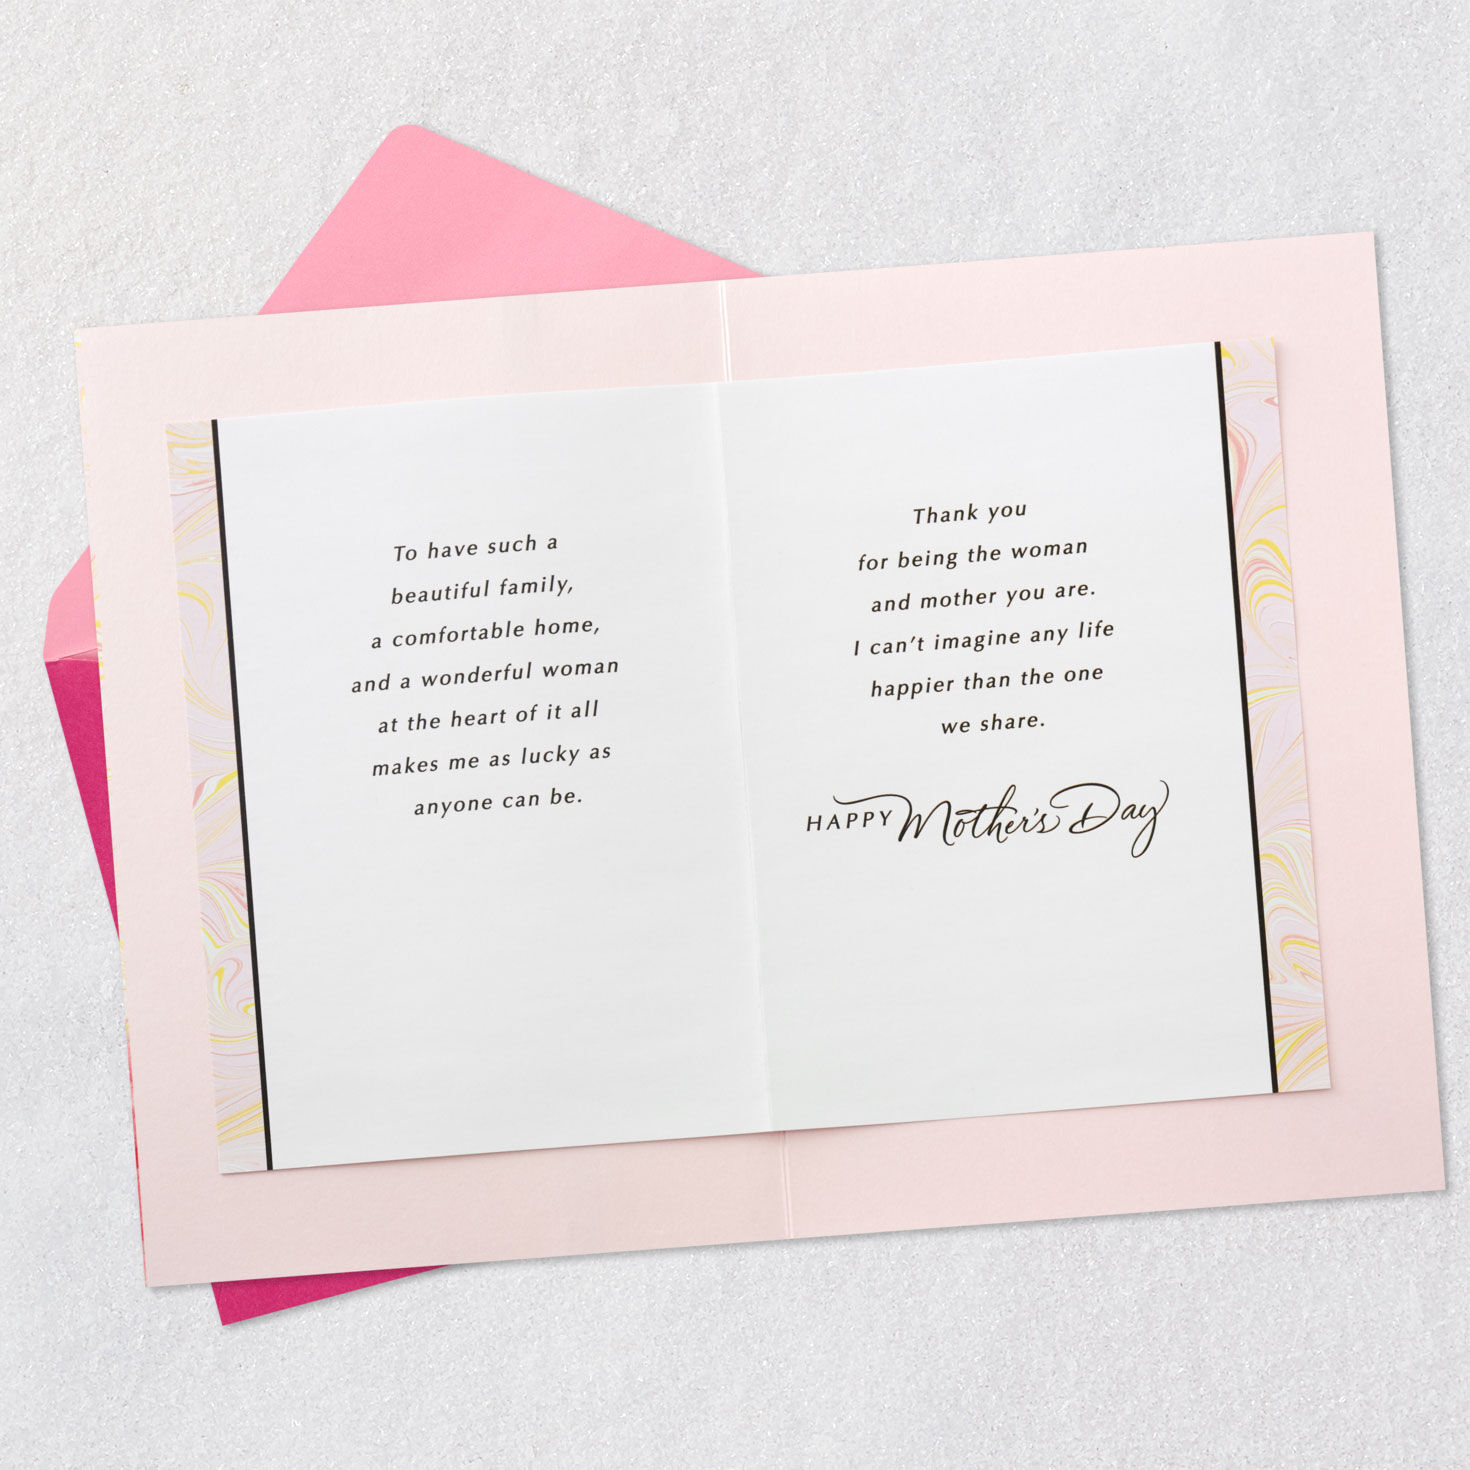 To have such a
beautiful family,
a comfortable home,
and a wonderful woman
at the heart of it all
makes me as lucky as
anyone can be.
Thank you
for being the woman
and mother you are.
I can't imagine any life
happier than the one
we share.
HAPPY Mother's Day